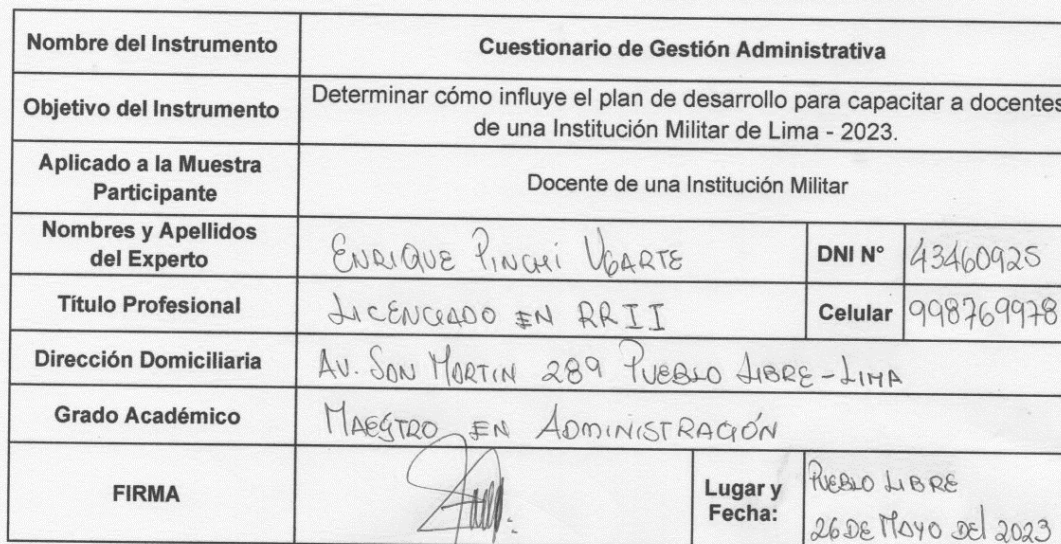 Nombre del Instrumento
Cuestionario de Gestión Administrativa
Objetivo del Instrumento
Determinar cómo influye el plan de desarrollo para capacitar a docentes
de una Institución Militar de Lima - 2023.
Aplicado a la Muestra
Participante
Docente de una Institución Militar
Nombres y Apellidos
del Experto
ENRIQUE PINCHI UGARTE
DNI N°
43460925
Título Profesional
LICENCIADO EN RRII
Celular
998769978
Dirección Domiciliaria
AV. SAN MARTIN 289 PUEBLO LIBRE-LIMA
Grado Académico
MAESTRO EN ADMINISTRACIÓN
FIRMA
Lugar y
Fecha:
PUEBLO LIBRE
26 DE MAYO DEl 2023